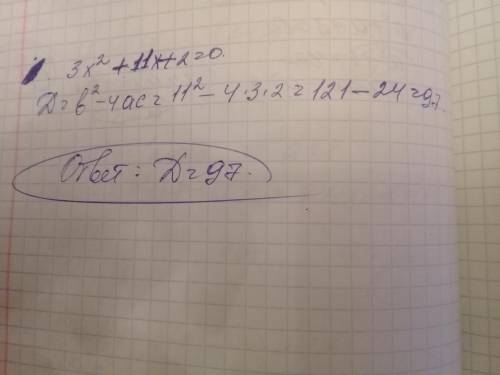 3x² + 11x + 2 = 0.
D = b² - 4ac = 11² - 4·3·2 = 121 - 24 = 97.
Ответ: D = 97.